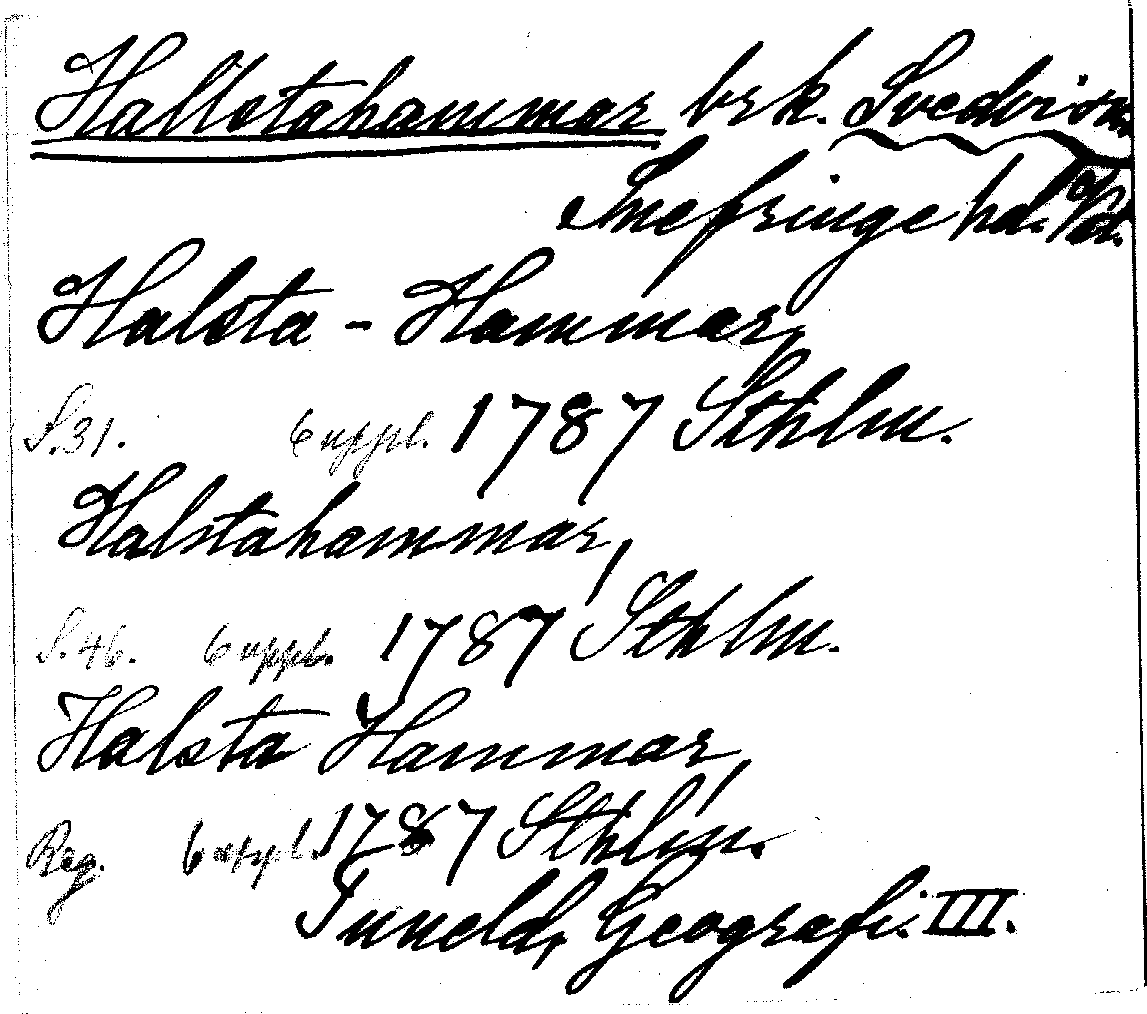 Hallstahammar brk. Svedvi sn.
Snefringe hd. Vstm.
Halsta - Hammar,
S. 31. 6 uppl. 1787 Sthlm.
Halstahammar,
S. 46. 6 uppl. 1787 Sthlm.
Halsta Hammar,
Reg. 6 uppl. 1787 Sthlm.
Tuneld, Geografi. III.